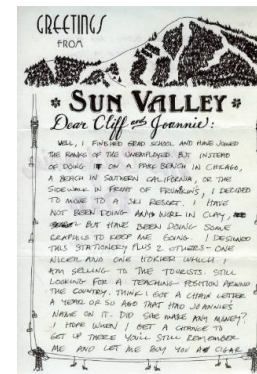 GREETINGS
FROM
* SUN VALLEY *
Dear Cliff and Joannie:
WELL, I FINISHED GRAD SCHOOL AND HAVE JOINED
THE RANKS OF THE UNEMPLOYED BUT INSTEAD
OF DOING IT ON A PARK BENCH IN CHICAGO,
A BEACH IN SOUTHERN CALIFORNIA, OR THE
SIDEWALK IN FRONT OF FRUMKINS, I DECIDED
TO MOVE TO A SKI RESORT. I HAVE
NOT BEEN DOING ANY WORK IN CLAY,
BUT HAVE BEEN DOING SOME
GRAPHICS TO KEEP ME GOING. I DESIGNED
THIS STATIONERY PLUS 2 OTHERS - ONE
NICER AND ONE HOKIER WHICH I
AM SELLING TO THE TOURISTS. STILL
LOOKING FOR A TEACHING POSITION AROUND
THE COUNTRY. THINK I GOT A CHAIN LETTER
A YEAR OR SO AGO THAT HAD JOANNIE'S
NAME ON IT. DID SHE MAKE ANY MONEY?
I HOPE WHEN I GET A CHANCE TO
GET UP THERE YOU'LL STILL REMEMBER
ME AND LET ME BUY YOU A CIGAR